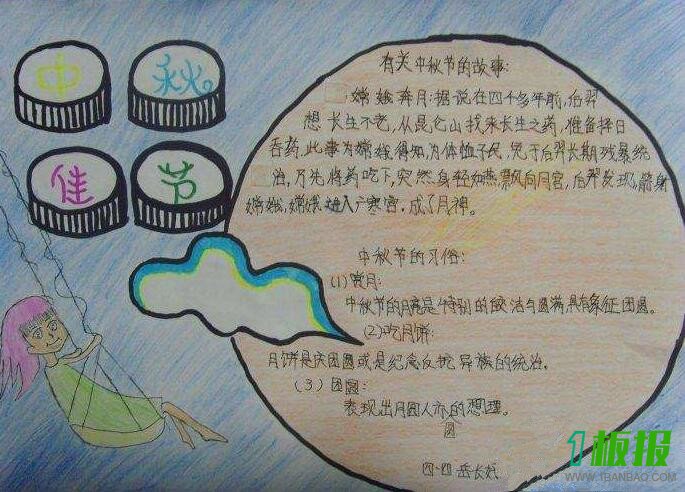 中 秋
佳 节
有关中秋节的故事:
嫦娥奔月:据说在四千多年前,后羿
想长生不老,从昆仑山找来长生之药,准备择日
吞药,此事为嫦娥得知,为体恤子民,免于后羿长期残暴统
治,万先将药吃下,突然身轻如燕飘向月宫,后羿发现,箭身
嫦娥,嫦娥进入广寒宫,成了月神。
中秋节的习俗:
(1)赏月:
中秋节的月亮是特别的皎洁与圆满,具有象征团圆。
(2)吃月饼:
月饼是庆团圆或是纪念反抗异族的统治。
(3)团圆:
表现出月圆人亦的想理。
圆
四·四 岳长
1板报
WWW.1BANBAO.COM